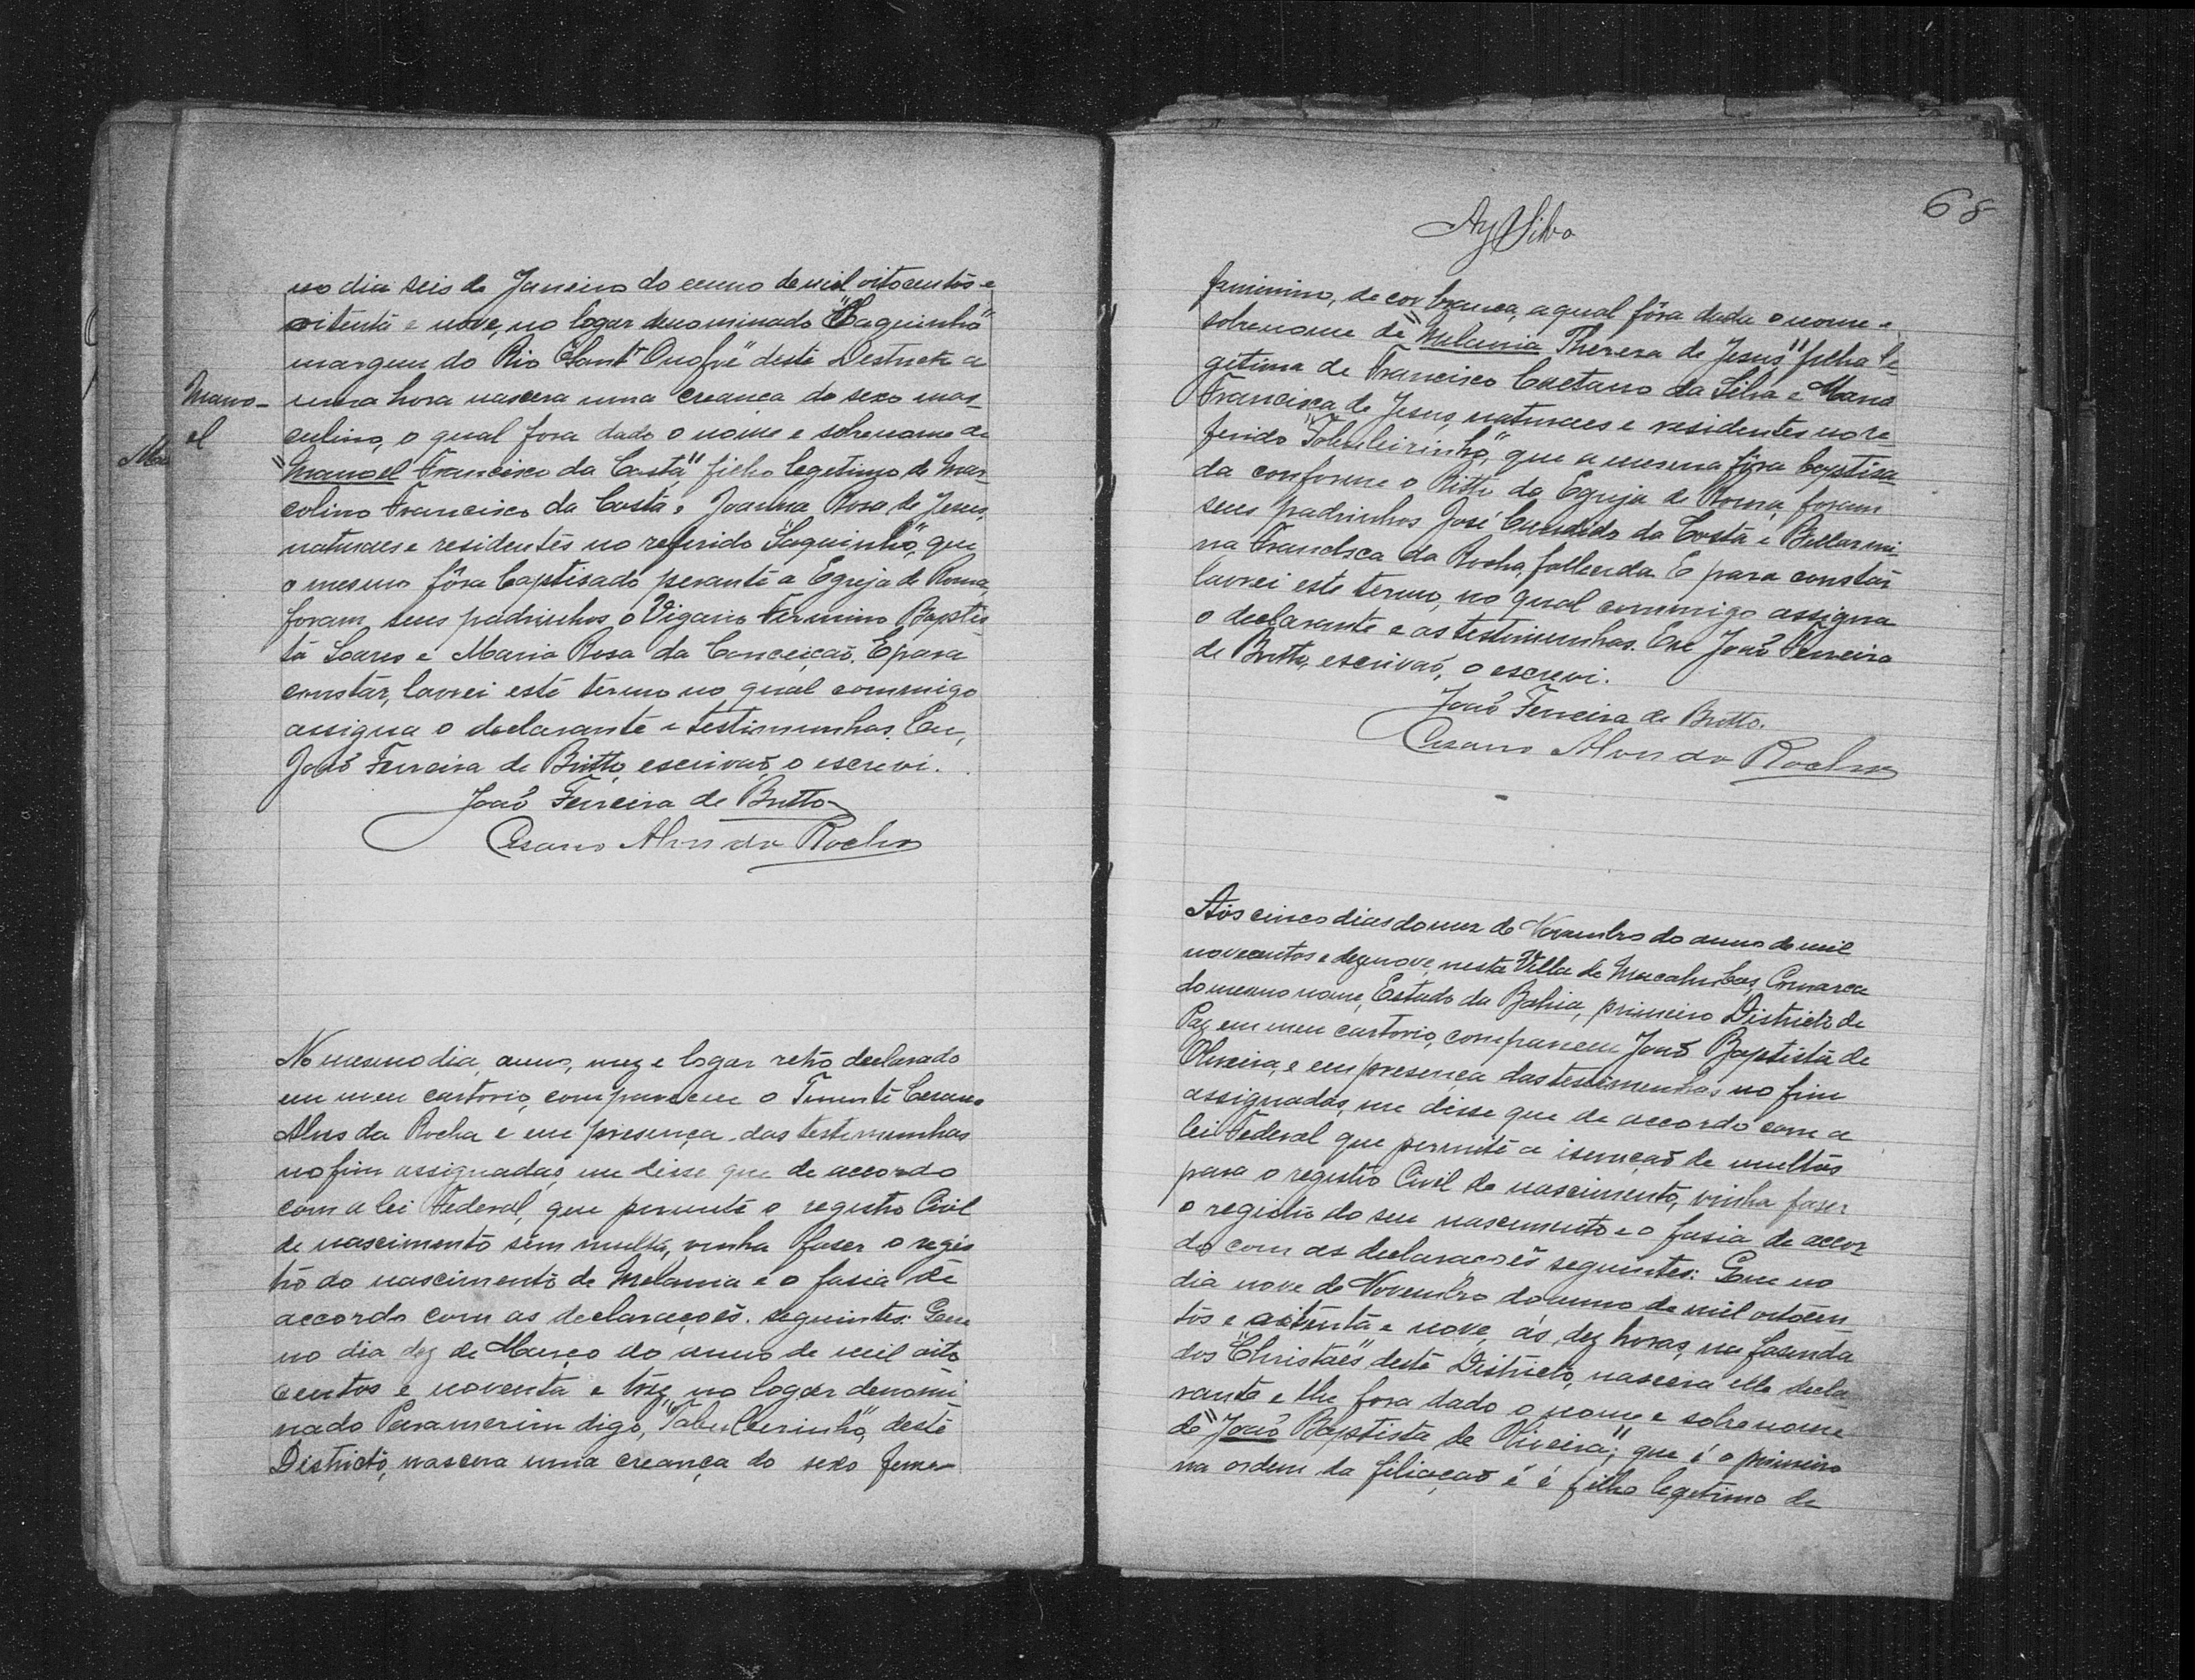 no dia seis de Janeiro do anno de mil oitocentos e
oitenta e nove, no logar denominado "Saquinho"
margem do Rio "Santo Onofre" deste Destricto a
uma hora nascera uma creança do sexo mas-
culino, o qual fora dado o nome e sobrenome de
"Manoel Francisco da Costa" filho legetimo de Mar-
colino Francisco da Costa e Joanna Rosa de Jesus,
naturaes e residentes no referido "Saquinho", que
o mesmo fôra baptisado perante a Egreja de Roma,
foram seus padrinhos o Vigario Firmino Baptis
ta Soares e Maria Rosa da Conceição. E para
constar, lavrei este termo no qual commigo
assigna o declarante e testimunhas. Eu,
João Ferreira de Britto, escrivão o escrevi.
João Ferreira de Britto
Cesario Alves da Rocha
Mano-
el
No mesmo dia, anno, mez e logar retro declarado
em meu cartorio, compareceu o Tenente Cesario
Alves da Rocha e em presença das testimunhas
no fim assignadas, me disse que de accordo
com a lei Federal, que permite o registro Civil
de nascimento sem multa, vinha faser o regis
tro do nascimento de Melania e o fasia de
accordo com as declarações seguintes: Que
no dia dez de Março do anno de mil oito
centos e noventa e trez, no logar denomi
nado Paramerim digo, "Taboleirinho", deste
Districto, nascera uma creança do sexo feme-
68
Ay Silva
feminino, de cor branca, a qual fôra dada o nome e
sobrenome de "Melania Thereza de Jesus" filha le
gitima de Francisco Caetano da Silva e Maria
Francisca de Jesus, naturaes e residentes no re-
ferido "Taboleirinho", que a mesma fôra baptisa
da conforme o Ritto da Egreja de Roma, foram
seus padrinhos José Candido da Costa e Bellarmi-
na Francisca da Rocha, fallecida. E para constar
lavrei este termo, no qual commigo assigna
o declarante e as testimunhas. Eu João Ferreira
de Britto, escrivão, o escrevi.
João Ferreira de Britto.
Cesario Alves da Rocha
Aos cinco dias do mez de Novembro do anno de mil
novecentos e dezenove, nesta Villa de Macahubas, Comarca
do mesmo nome, Estado da Bahia, primeiro Districto de
Paz em meu cartorio, compareceu João Baptista de
Oliveira, e em presença das testimunhas no fim
assignadas, me disse que de accordo com a
lei Federal que permite a isenção de multas
para o registro Civil de nascimento, vinha faser
o registro do seu nascimento e o fasia de accor
do com as declarações seguintes: Que no
dia nove de Novembro do anno de mil oitocen
tos e oitenta e nove, ás dez horas, na fasenda
dos "Christaes", deste Districto, nascera elle decla
rante e lhe fora dado o nome e sobrenome
de "João Baptista de Oliveira"; que é o primeiro
na ordem da filiação e é filho legetimo de